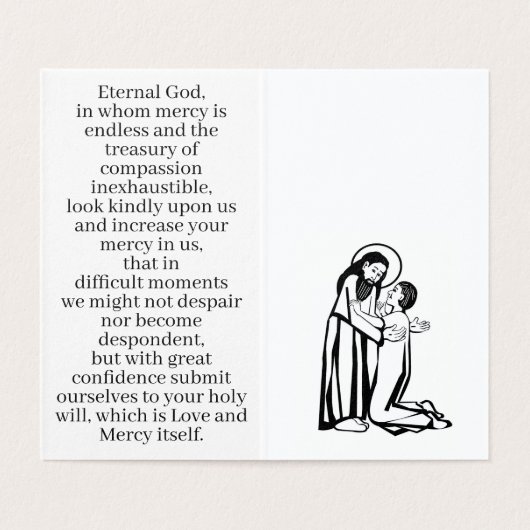 Eternal God,
in whom mercy is
endless and the
treasury of
compassion
inexhaustible,
look kindly upon us
and increase your
mercy in us,
that in
difficult moments
we might not despair
nor become
despondent,
but with great
confidence submit
ourselves to your holy
will, which is Love and
Mercy itself.